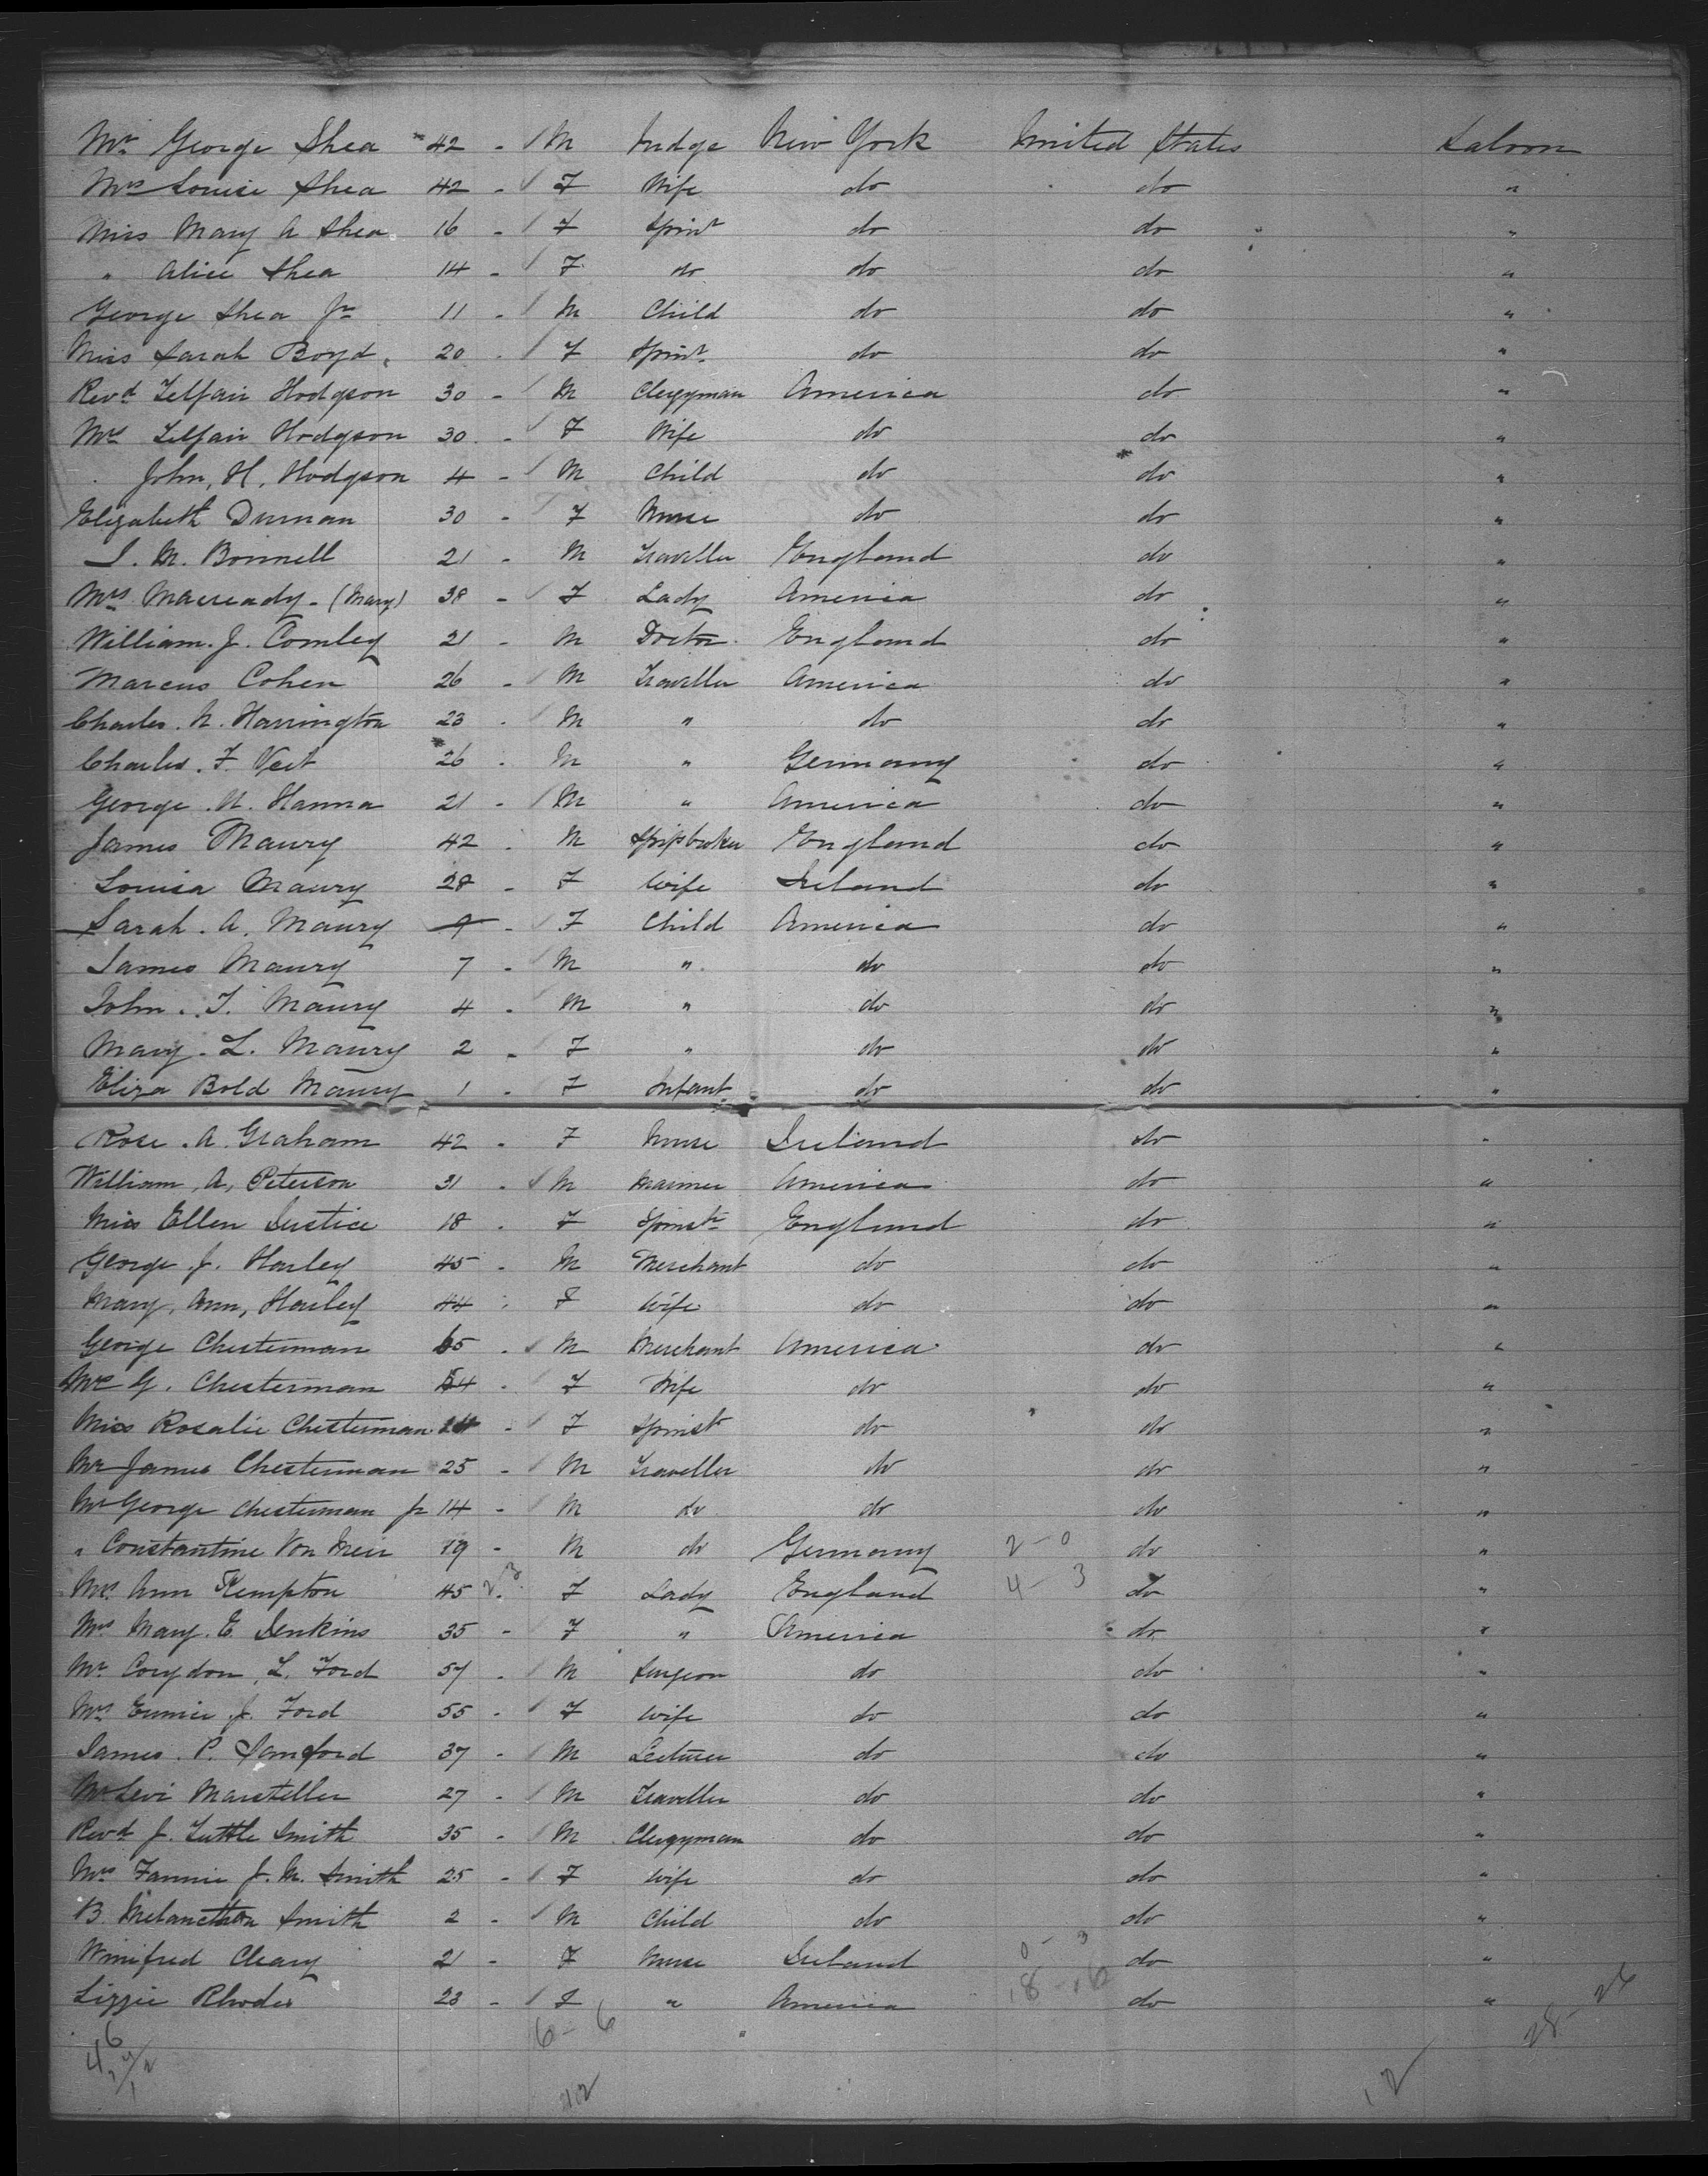 Mr George Shea 42 - M Judge New York United States Saloon
Mrs Louise Shea 42 - F Wife do do "
Miss Mary A Shea 16 - F Spinr do do "
" Alice Shea 14 - F do do do "
George Shea Jr 11 - M Child do do "
Miss Sarah Boyd 20 - F Spinr do do "
Revd Telfair Hodgson 30 - M Clergyman America do "
Mrs Telfair Hodgson 30 - F Wife do do "
John, H, Hodgson 4 - M Child do do "
Elizabeth Durnan 30 - F Nurse do do "
I. M. Bonnell 21 - M Traveller England do "
Mrs Macready - (Mary) 38 - F Lady America do "
William. J. Comley 21 - M Doctor England do "
Marcus Cohen 26 - M Traveller America do "
Charles. N. Harrington 23 - M " do do "
Charles. F. Veit 26 - M " Germany do "
George. N. Hanna 21 - M " America do "
James Maury 42 - M Shipbroker England do "
Louisa Maury 28 - F Wife Ireland do "
Sarah. A. Maury 9 - F Child America do "
James Maury 7 - M " do do "
John. T. Maury 4 - M " do do "
Mary. L. Maury 2 - F " do do "
Eliza Bold Maury 1 - F Infant do do "
Rose. A. Graham 42 - F Nurse Ireland do "
William, A, Peterson 31 - M Mariner America do "
Miss Ellen Justice 18 - F Spinstr England do "
George. J. Harley 45 - M Merchant do do "
Mary, Ann, Harley 44 - F Wife do do "
George Chesterman 65 - M Merchant America do "
Mrs G. Chesterman 54 - F Wife do do "
Miss Rosalie Chesterman 24 - F Spinst do do "
Mr James Chesterman 25 - M Traveller do do "
Mr George Chesterman Jr 14 - M do do do "
" Constantine Von Meir 19 - M do Germany 2-0 do "
Mrs Ann Kempton 45 - F Lady England 4-3 do "
Mrs Mary. E. Jenkins 35 - F " America do "
Mr Corydon, L. Ford 57 - M Surgeon do do "
Mrs Eunice. J. Ford 55 - F Wife do do "
James. P. Sanford 37 - M Lecturer do do "
Mr Levi Marsteller 27 - M Traveller do do "
Revd J. Tuttle Smith 35 - M Clergyman do do "
Mrs Fannie J. M. Smith 25 - F Wife do do "
B. Melancthon Smith 2 - M Child do do "
Winifred Cleary 21 - F Nurse Ireland do "
Lizzie Rhodes 23 - F " America 18-16 do "
46 6-6 28-26
12